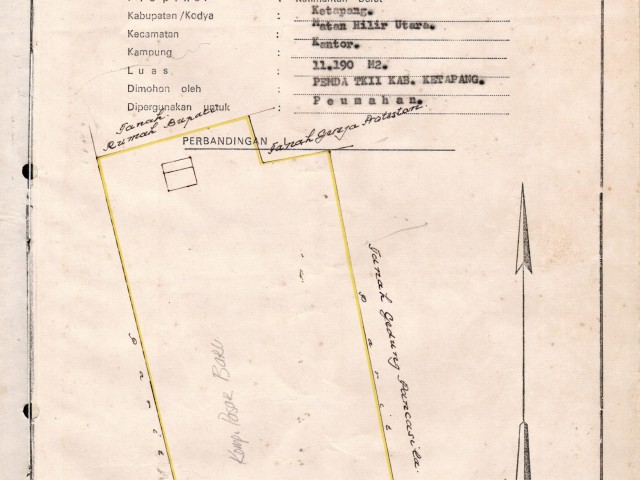 Kabupaten/Kodya : Ketapang.
Kecamatan : Matan Hilir Utara.
Kampung : Kantor.
Luas : 11.190 M2.
Dimohon oleh : PEMDA TKII KAB. KETAPANG.
Dipergunakan untuk : Peumahan.
Tanah.
Rumah Bupati
PERBANDINGAN 1
Tanah Gereja Protestan.
Tanah Gedung Pancasila.
Parit
Parit
Kamp. Pasar Baru